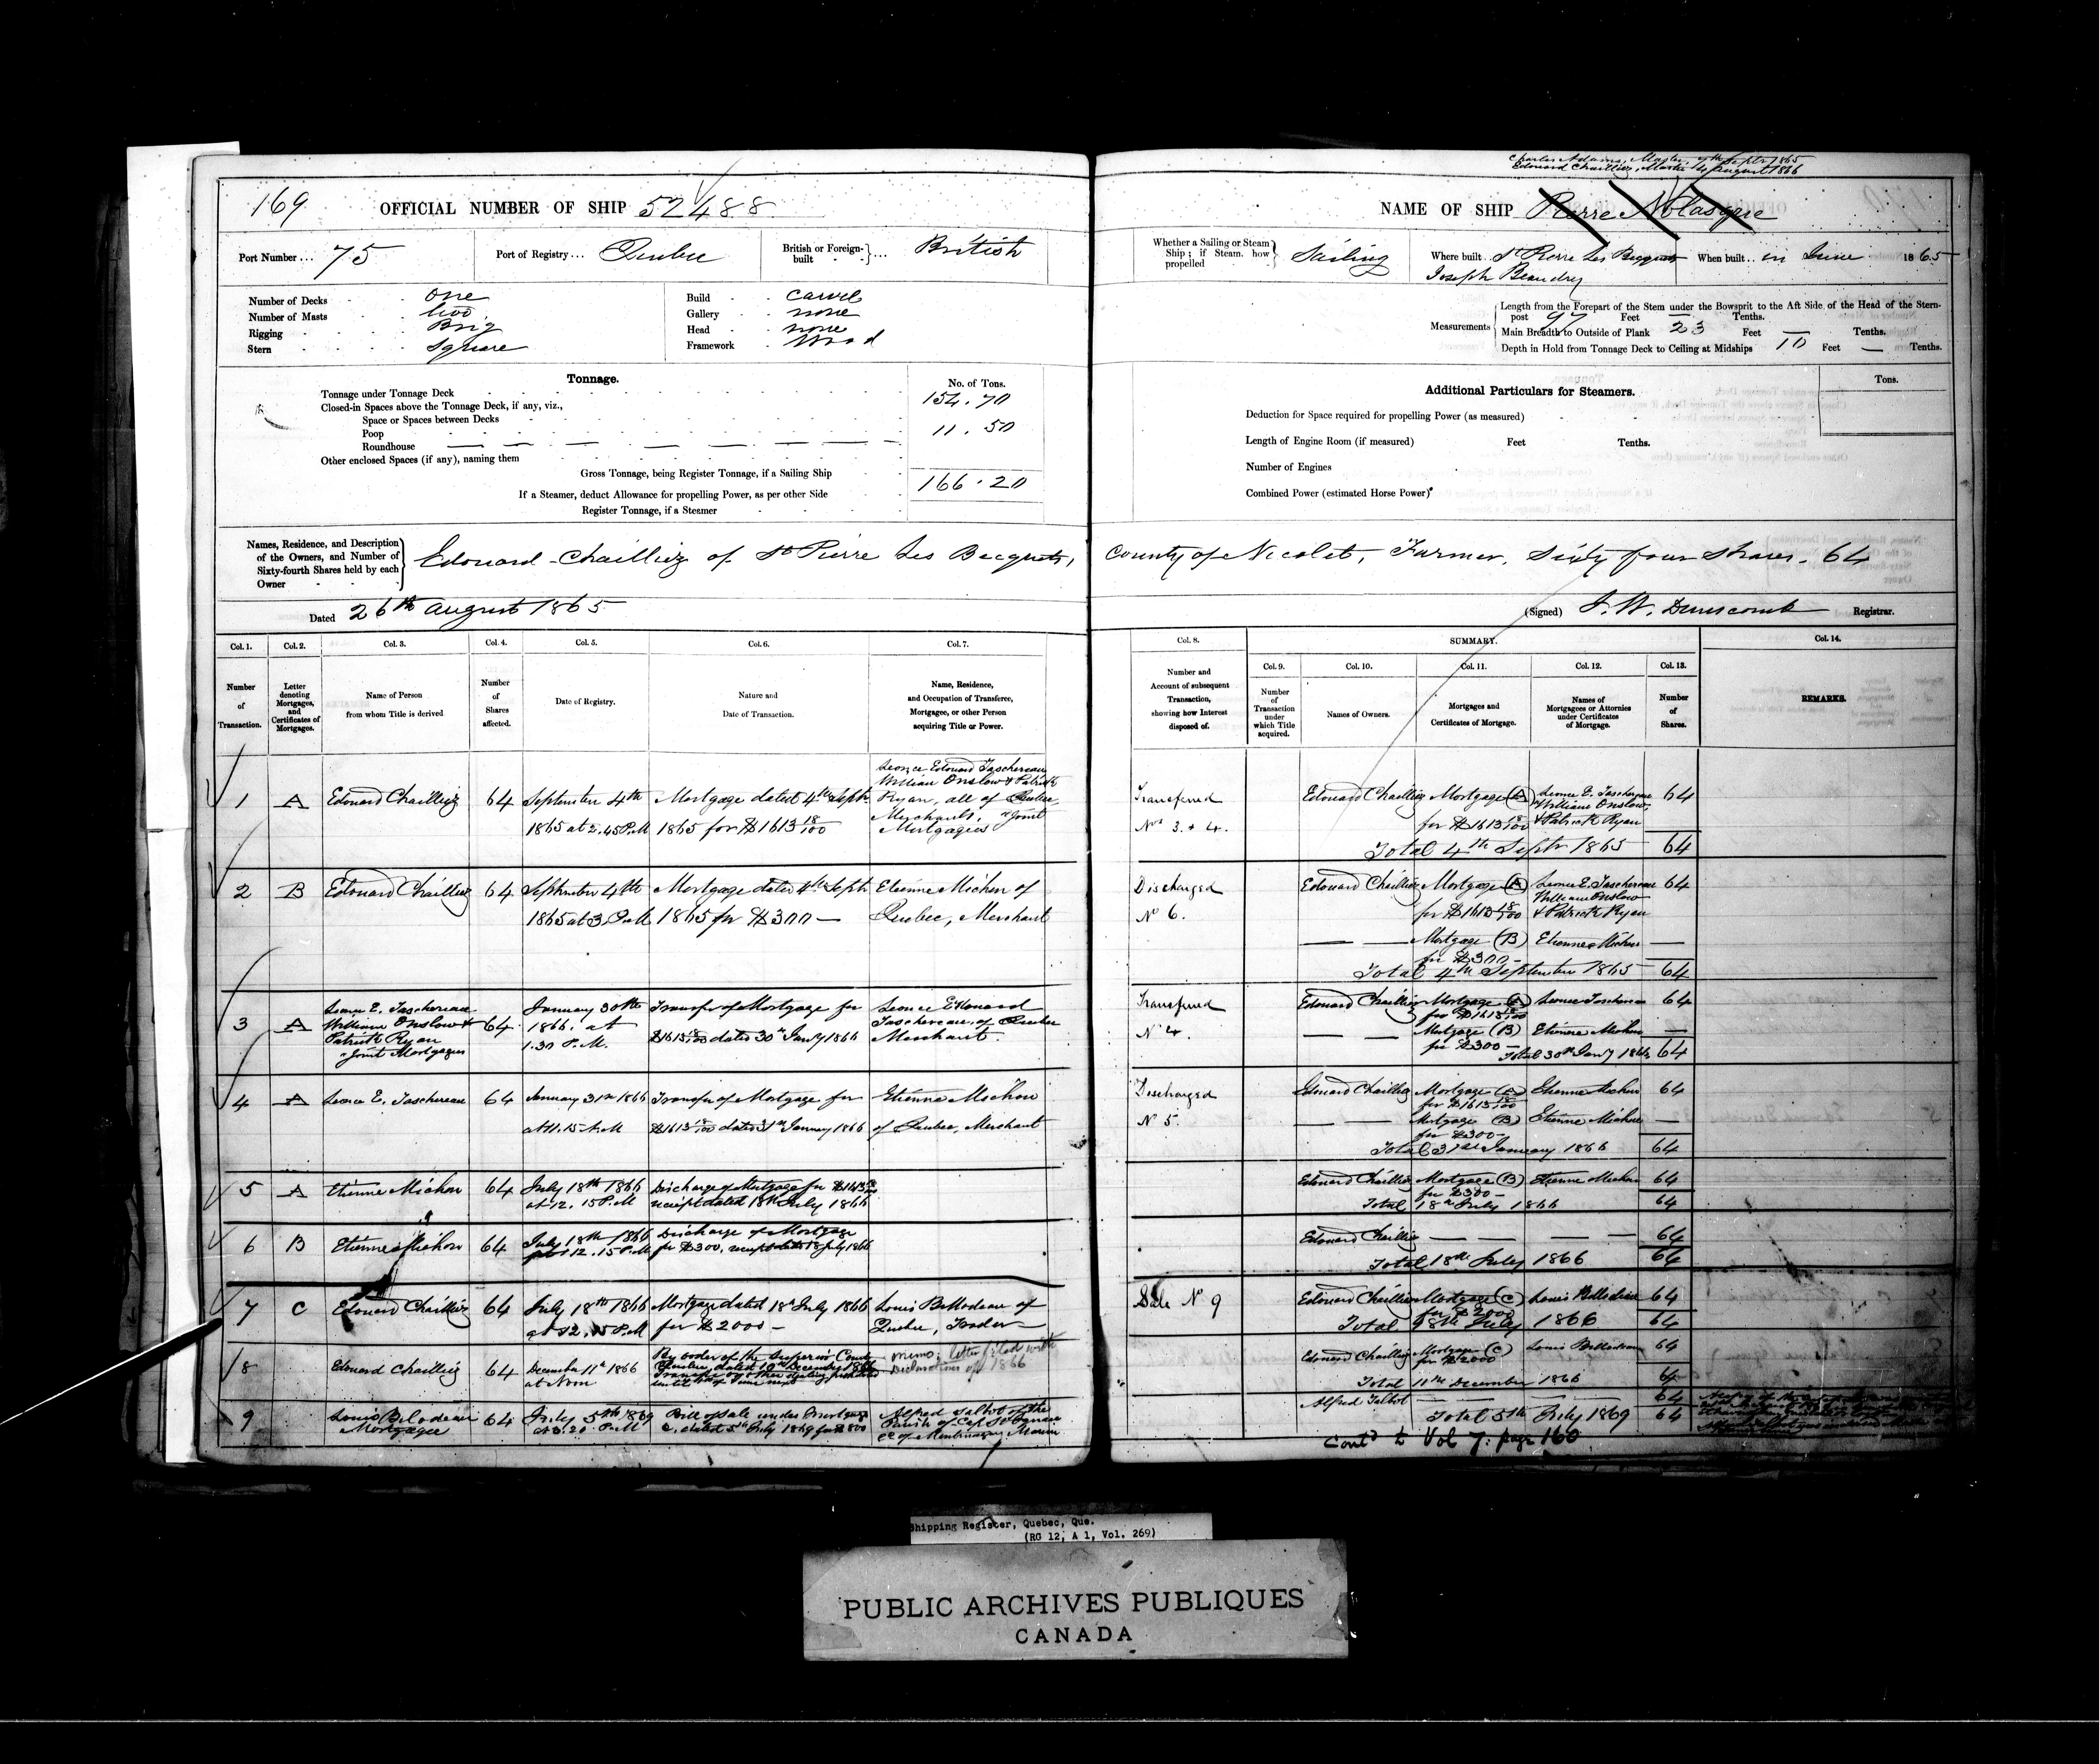 Charles Adams, Master, 9th Septr 1865
Edouard Chailliez, Master 14 August 1866
169
OFFICIAL NUMBER OF SHIP 52488
NAME OF SHIP Pierre Nolasque
Port Number ... 75
Port of Registry ... Quebec
British or Foreign-built ... British
Whether a Sailing or Steam Ship; if Steam, how propelled Sailing
Where built .. St Pierre Les Becquets
Joseph Beaudry
When built .. in June 1865
Number of Decks one
Number of Masts two
Rigging Brig
Stern Square
Build Carvel
Gallery none
Head none
Framework Wood
Measurements
Length from the Forepart of the Stem under the Bowsprit to the Aft Side of the Head of the Stern-
post 97 Feet — Tenths.
Main Breadth to Outside of Plank 23 Feet — Tenths.
Depth in Hold from Tonnage Deck to Ceiling at Midships 10 Feet — Tenths.
Tonnage.
No. of Tons.
Tonnage under Tonnage Deck 154.70
Closed-in Spaces above the Tonnage Deck, if any, viz.,
Space or Spaces between Decks
Poop 11.50
Roundhouse
Other enclosed Spaces (if any), naming them
Gross Tonnage, being Register Tonnage, if a Sailing Ship 166.20
If a Steamer, deduct Allowance for propelling Power, as per other Side
Register Tonnage, if a Steamer
Additional Particulars for Steamers.
Tons.
Deduction for Space required for propelling Power (as measured)
Length of Engine Room (if measured) Feet Tenths.
Number of Engines
Combined Power (estimated Horse Power)
Names, Residence, and Description
of the Owners, and Number of
Sixty-fourth Shares held by each
Owner
Edouard Chailliez of St Pierre Les Becquets, County of Nicolet, Farmer, Sixty four shares. 64
Dated 26th August 1865
(Signed) J. W. Dunscomb Registrar.
Col. 1. Col. 2. Col. 3. Col. 4. Col. 5. Col. 6. Col. 7.
Number of Transaction.
Letter denoting Mortgages, and Certificates of Mortgages.
Name of Person from whom Title is derived
Number of Shares affected.
Date of Registry.
Nature and Date of Transaction.
Name, Residence, and Occupation of Transferee, Mortgagee, or other Person acquiring Title or Power.
Col. 8. SUMMARY. Col. 14.
Col. 9. Col. 10. Col. 11. Col. 12. Col. 13.
Number and Account of subsequent Transaction, showing how Interest disposed of.
Number of Transaction under which Title acquired.
Names of Owners.
Mortgages and Certificates of Mortgage.
Names of Mortgagees or Attornies under Certificates of Mortgage.
Number of Shares.
REMARKS.
1 A Edouard Chailliez 64 September 4th 1865 at 2.45 P.M Mortgage dated 4th Septr 1865 for $1613 18/100 Leonce Edouard Taschereau William Onslow & Patrick Ryan, all of Quebec, Merchants, "Joint Mortgagees
Transferred Nos 3. & 4. Edouard Chailliez Mortgage (A) for $1613 18/100 Leonce E. Taschereau William Onslow & Patrick Ryan 64
Total 4th Septr 1865 64
2 B Edouard Chailliez 64 September 4th 1865 at 3 P.M Mortgage dated 4th Septr 1865 for $300 — Etienne Michon of Quebec, Merchant
Discharged No 6. Edouard Chailliez Mortgage (A) for $1613 18/100 Leonce E. Taschereau William Onslow & Patrick Ryan 64
— — Mortgage (B) for $300 — Etienne Michon —
Total 4th September 1865 64
3 A Leonce E. Taschereau William Onslow & Patrick Ryan "Joint Mortgagees 64 January 30th 1866. at 1.30 P.M. Transfer of Mortgage for $1613 18/100 dated 30th Jany 1866 Leonce Edouard Taschereau, of Quebec Merchant.
Transferred No 4. Edouard Chailliez Mortgage (A) for $1613 18/100 Leonce Taschereau 64
— — Mortgage (B) for $300 — Etienne Michon —
Total 30th Jany 1866 64
4 A Leonce E. Taschereau 64 January 31st 1866 at 11.15 A.M Transfer of Mortgage for $1613 18/100 dated 31st January 1866 Etienne Michon of Quebec, Merchant
Discharged No 5. Edouard Chailliez Mortgage (A) for $1613 18/100 Etienne Michon 64
— — Mortgage (B) for $300 — Etienne Michon —
Total 31st January 1866 64
5 A Etienne Michon 64 July 18th 1866 at 12.15 P.M Discharge of Mortgage for $1613 18/100 receipt dated 18th July 1866
Edouard Chailliez Mortgage (B) for $300 — Etienne Michon 64
Total 18th July 1866 64
6 B Etienne Michon 64 July 18th 1866 at 12.15 P.M Discharge of Mortgage for $300, receipt dated 18 July 1866
Edouard Chailliez — — — — 64
Total 18th July 1866 64
7 C Edouard Chailliez 64 July 18th 1866 at 12.15 P.M Mortgage dated 18th July 1866 for $2000 — Louis Bellodeau of Quebec, Trader
Sale No 9 Edouard Chailliez Mortgage (C) for $2000 Louis Bellodeau 64
Total 18th July 1866 64
8 Edouard Chailliez 64 December 11th 1866 at Noon By order of the Superior Court Quebec, dated 10th December 1866 Transfer or other dealing prohibited until 10th of June next memo: letter filed with Declarations of 1866
Edouard Chailliez Mortgage (C) for $2000 Louis Bellodeau 64
Total 11th December 1866 64
9 Louis Belodeau Mortgagee 64 July 5th 1869 at 3.20 P.M Bill of Sale under Mortgage C. dated 5th July 1869 for $800 Alfred Talbot of the Parish of Cap St Ignace Co of Montmagny Marine
Alfred Talbot 64
Total 5th July 1869 64
Contd to Vol 7. page 160
Shipping Register, Quebec, Que.
(RG 12, A 1, Vol. 269)
PUBLIC ARCHIVES PUBLIQUES
CANADA